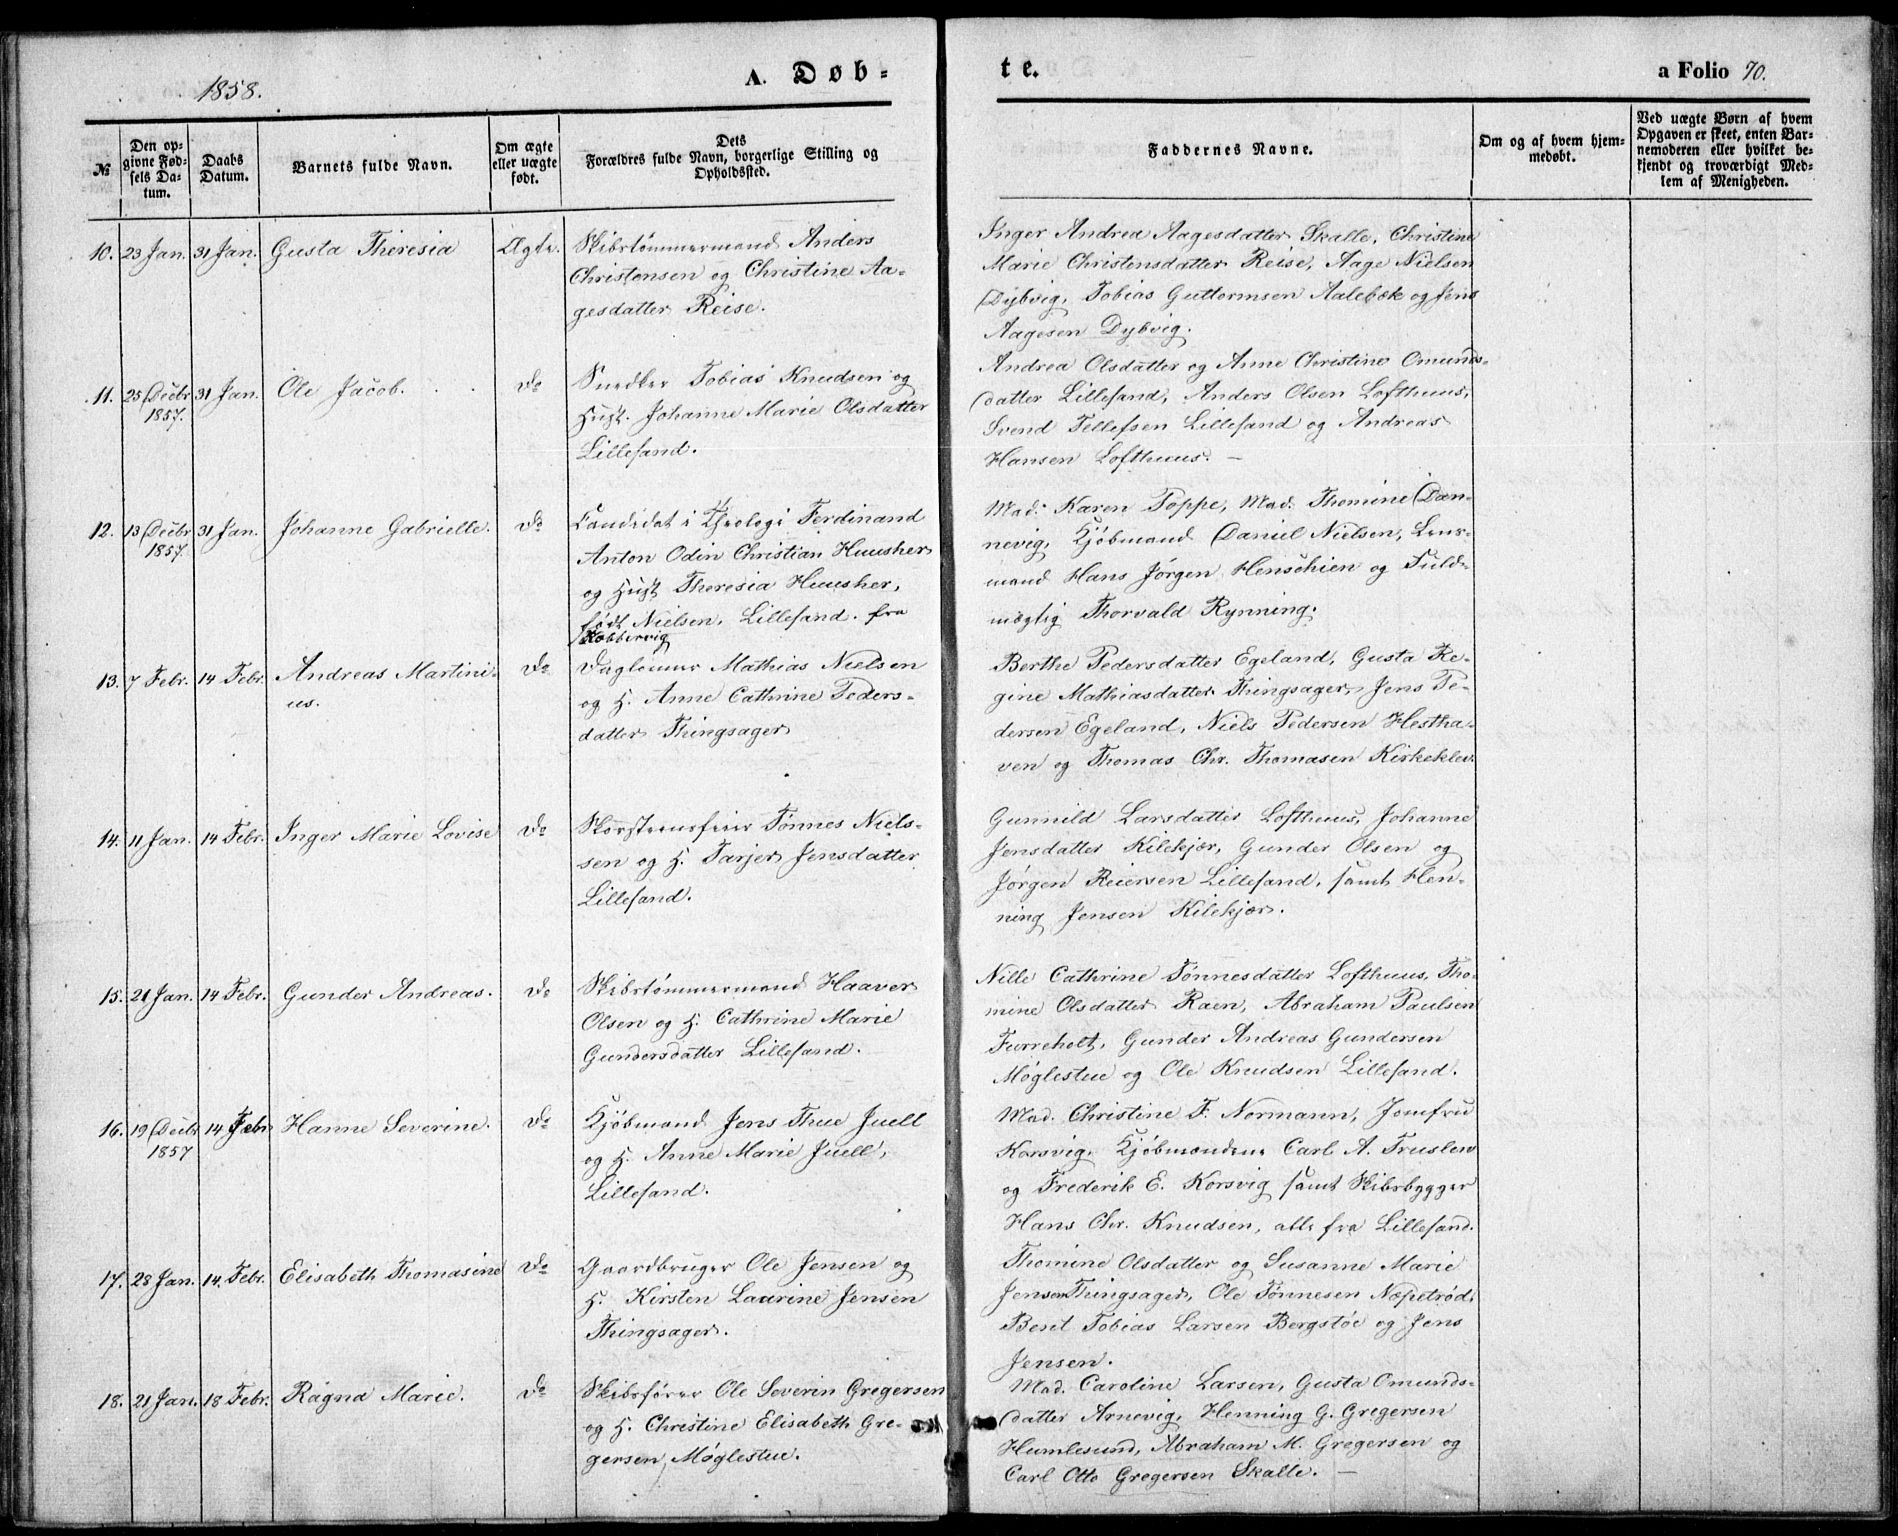 1858.
A. Døb-
te.
a Folio 70.
№
Den op-
givne Fød-
sels Da-
tum.
Daabs
Datum.
Barnets fulde Navn.
Om ægte
eller uægte
født.
Dets
Forældres fulde Navn, borgerlige Stilling og
Opholdssted.
Faddernes Navne.
Om og af hvem hjem-
medøbt.
Ved uægte Børn af hvem
Opgaven er skeet, enten Bar-
nemoderen eller hvilket be-
kjendt og troværdigt Med-
lem af Menigheden.
10. 23 Jan. 31 Jan. Gusta Theresia Ægte. Skibstømmermand Anders
Christensen og Christine Aa-
gesdatter Reise.
Inger Andrea Aagesdatter Skalle, Christine
Marie Christensdatter Reise, Aage Nielsen
Dybvig, Tobias Guttormsen Aalebæk og Jens
Aagesen Dybvig.
11. 25 Decbr 1857. 31 Jan. Ole Jacob. Do Snedker Tobias Knudsen og
Hust. Johanne Marie Olsdatter
Lillesand.
Andrea Olsdatter og Anne Christine Omunds-
datter Lillesand, Anders Olsen Lofthuus,
Svend Tellefsen Lillesand og Andreas
Hansen Lofthuus. —
12. 13 Decbr 1857. 31 Jan. Johanne Gabrielle. Do Candidat i Theologi Ferdinand
Anton Odin Christian Huusher
og Hust Theresia Huusher,
født Nielsen, Lillesand. fra
Kobbervig
Mad. Karen Poppe, Mad. Thomine Dan-
nevig, Kjøbmand Daniel Nielsen, Lens-
mand Hans Jørgen Henschien og Fuld-
mægtig Thorvald Rynning.
13. 7 Febr. 14 Febr. Andreas Martini-
us. Do Daglønner Mathias Nielsen
og H. Anne Cathrine Peders-
datter Thingsager
Berthe Pedersdatter Egeland, Gusta Re-
gine Mathiasdatter Thingsager, Jens Pe-
dersen Egeland, Niels Pedersen Hestha-
ven og Thomas Chr. Thomasen Kirkeklev.
14. 11 Jan. 14 Febr. Inger Marie Lovise Do Skorsteensfeier Tønnes Niel-
sen og H. Tarjer Jensdatter
Lillesand.
Gunnild Larsdatter Lofthuus, Johanne
Jensdatter Kilekjær, Gunder Olsen og
Jørgen Reiersen Lillesand, samt Hen-
ning Jensen Kilekjær.
15. 21 Jan. 14 Febr. Gunder Andreas. Do Skibstømmermand Haaver
Olsen og H. Cathrine Marie
Gundersdatter Lillesand.
Nille Cathrine Tønnesdatter Lofthuus, Tho-
mine Olsdatter Raen, Abraham Paulsen
Furreholt, Gunder Andreas Gundersen
Møglestue og Ole Knudsen Lillesand.
16. 19 Decbr 1857 14 Febr Hanne Severine. Do Kjøbmand Jens Thue Juell
og H. Anne Marie Juell,
Lillesand.
Mad. Christine F. Normann, Jomfru
Korsvig, Kjøbmændene Carl A. Truslew
og Frederik E. Korsvig samt Skibsbygger
Hans Chr. Knudsen, alle fra Lillesand.
17. 28 Jan. 14. Febr. Elisabeth Thomasine Do Gaardbruger Ole Jensen og
H. Kirsten Laurine Jensen
Thingsager.
Thomine Olsdatter og Susanne Marie
Jensen Thingsager, Ole Tønnesen Næpetrød,
Bent Tobias Larsen Bergstøe og Jens
Jensen.
18. 21 Jan. 18 Febr. Ragna Marie. Do Skibsfører Ole Severin Gregersen
og H. Christine Elisabeth Gre-
gersen, Møglestue.
Mad. Caroline Larsen, Gusta Omunds-
datter Arnevig, Henning G. Gregersen
Humlesund, Abraham M. Gregersen og
Carl Otto Gregersen Skalle. —